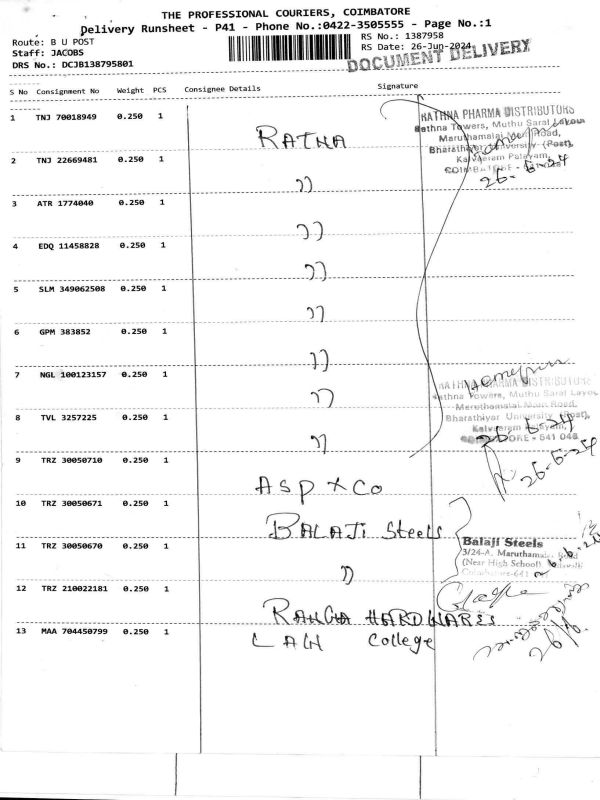 THE PROFESSIONAL COURIERS, COIMBATORE
Delivery Runsheet - P41 - Phone No.:0422-3505555 - Page No.:1
Route: B U POST
Staff: JACOBS
DRS No.: DCJB138795801
RS No.: 1387958
RS Date: 26-Jun-2024
DOCUMENT DELIVERY
S No Consignment No Weight PCS Consignee Details Signature
1 TNJ 70018949 0.250 1 RATNA
RATHNA PHARMA DISTRIBUTORS
Rathna Towers, Muthu Saral Layou
Maruthamalai Main Road,
Bharathiyar University (Post),
Kalveeram Palayam,
26-6-24
2 TNJ 22669481 0.250 1 ))
3 ATR 1774040 0.250 1 ))
4 EDQ 11458828 0.250 1 ))
5 SLM 349062508 0.250 1 ))
6 GPM 383852 0.250 1 ))
7 NGL 100123157 0.250 1 ))
RATHNA PHARMA DISTRIBUTORS
Rathna Towers, Muthu Saral Layou
Maruthamalai Main Road,
Bharathiyar University (Post),
8 TVL 3257225 0.250 1 ))
Kalveeram Palayam,
COIMBATORE - 641 046
26-6-24
9 TRZ 30050710 0.250 1 ASP & Co
26-6-24
10 TRZ 30050671 0.250 1 BALAJI Steels
11 TRZ 30050670 0.250 1 ))
Balaji Steels
3/24-A, Maruthamalai Road
(Near High School)
12 TRZ 210022181 0.250 1 RANGA HARDWARES
13 MAA 704450799 0.250 1 LAW College